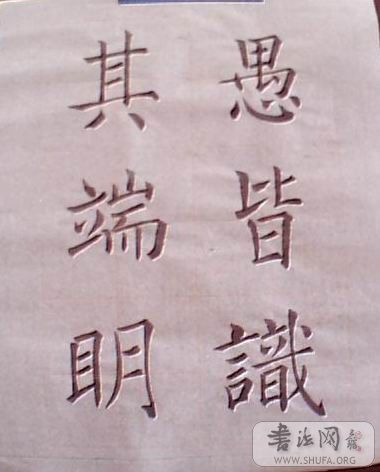 愚皆識
其端眀
书法网
WWW.SHUFA.ORG